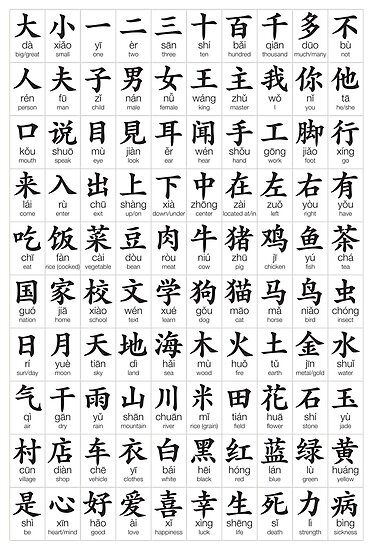 大 小 一 二 三 十 百 千 多 不
dà xiǎo yī èr sān shí bǎi qiān duō bù
big/great small one two three ten hundred thousand much/many not
人 夫 子 男 女 王 主 我 你 他
rén fū zǐ nán nǚ wáng zhǔ wǒ nǐ tā
person man child male female king master I you he/she
口 说 目 見 耳 闻 手 工 脚 行
kǒu shuō mù jiàn ěr wén shǒu gōng jiǎo xíng
mouth speak eye look ear hear hand work foot go
来 入 出 上 下 中 在 左 右 有
lái rù chū shàng xià zhōng zài zuǒ yòu yǒu
come enter exit up/on down/under center located at/in left right have
吃 饭 菜 豆 肉 牛 猪 鸡 鱼 茶
chī fàn cài dòu ròu niú zhū jī yú chá
eat rice (cooked) vegetable bean meat cow pig chicken fish tea
国 家 校 文 学 狗 猫 马 鸟 虫
guó jiā xiào wén xué gǒu māo mǎ niǎo chóng
nation home school text learn dog cat horse bird insect
日 月 天 地 海 木 火 土 金 水
rì yuè tiān dì hǎi mù huǒ tǔ jīn shuǐ
sun/day moon sky land sea wood fire earth metal/gold water
气 干 雨 山 川 米 田 花 石 玉
qì gān yǔ shān chuān mǐ tián huā shí yù
air dry rain mountain river rice (grain) field flower stone jade
村 店 车 衣 白 黑 红 蓝 绿 黄
cūn diàn chē yī bái hēi hóng lán lǜ huáng
village shop vehicle clothes white black red blue green yellow
是 心 好 爱 喜 幸 生 死 力 病
shì xīn hǎo ài xǐ xìng shēng sǐ lì bìng
be heart/mind good love happiness luck life death strength sickness